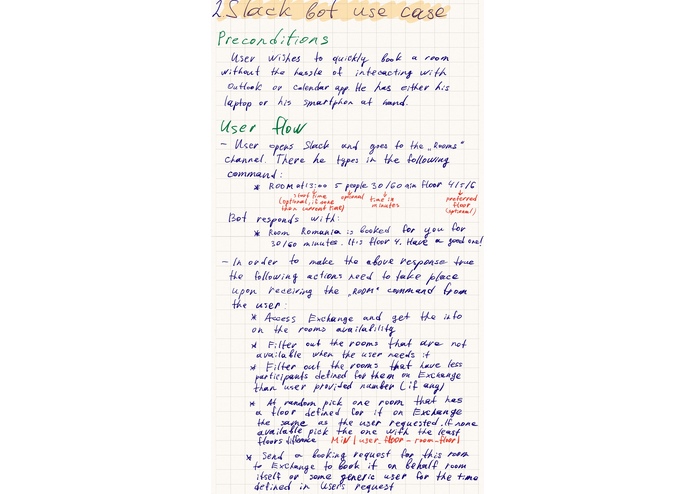 2. Slack bot use case
Preconditions
User wishes to quickly book a room
without the hassle of interacting with
Outlook or calendar app. He has either his
laptop or his smartphon at hand.
User flow
- User opens Slack and goes to the „Rooms"
channel. There he types in the following
command:
* ROOM at 13:00 5 people 30/60 min floor 4/5/6
start time optional time in preferred
(optional, if none minutes floor
than current time) (optional)
Bot responds with:
* Room Romania is booked for you for
30/60 minutes. It is floor 4. Have a good one!
- In order to make the above response true
the following actions need to take place
upon receiving the „ROOM" command from
the user:
* Access Exchange and get the info
on the rooms availability
* Filter out the rooms that are not
available when the user needs it
* Filter out the rooms that have less
participants defined for them on Exchange
than user provided number (if any)
* At random pick one room that has
a floor defined for it on Exchange
the same as the user requested. If none
available pick the one with the least
floors difference MIN | user_floor - room_floor |
* Send a booking request for this room
to Exchange to book it on behalf room
itself or some generic user for the time
defined in users request